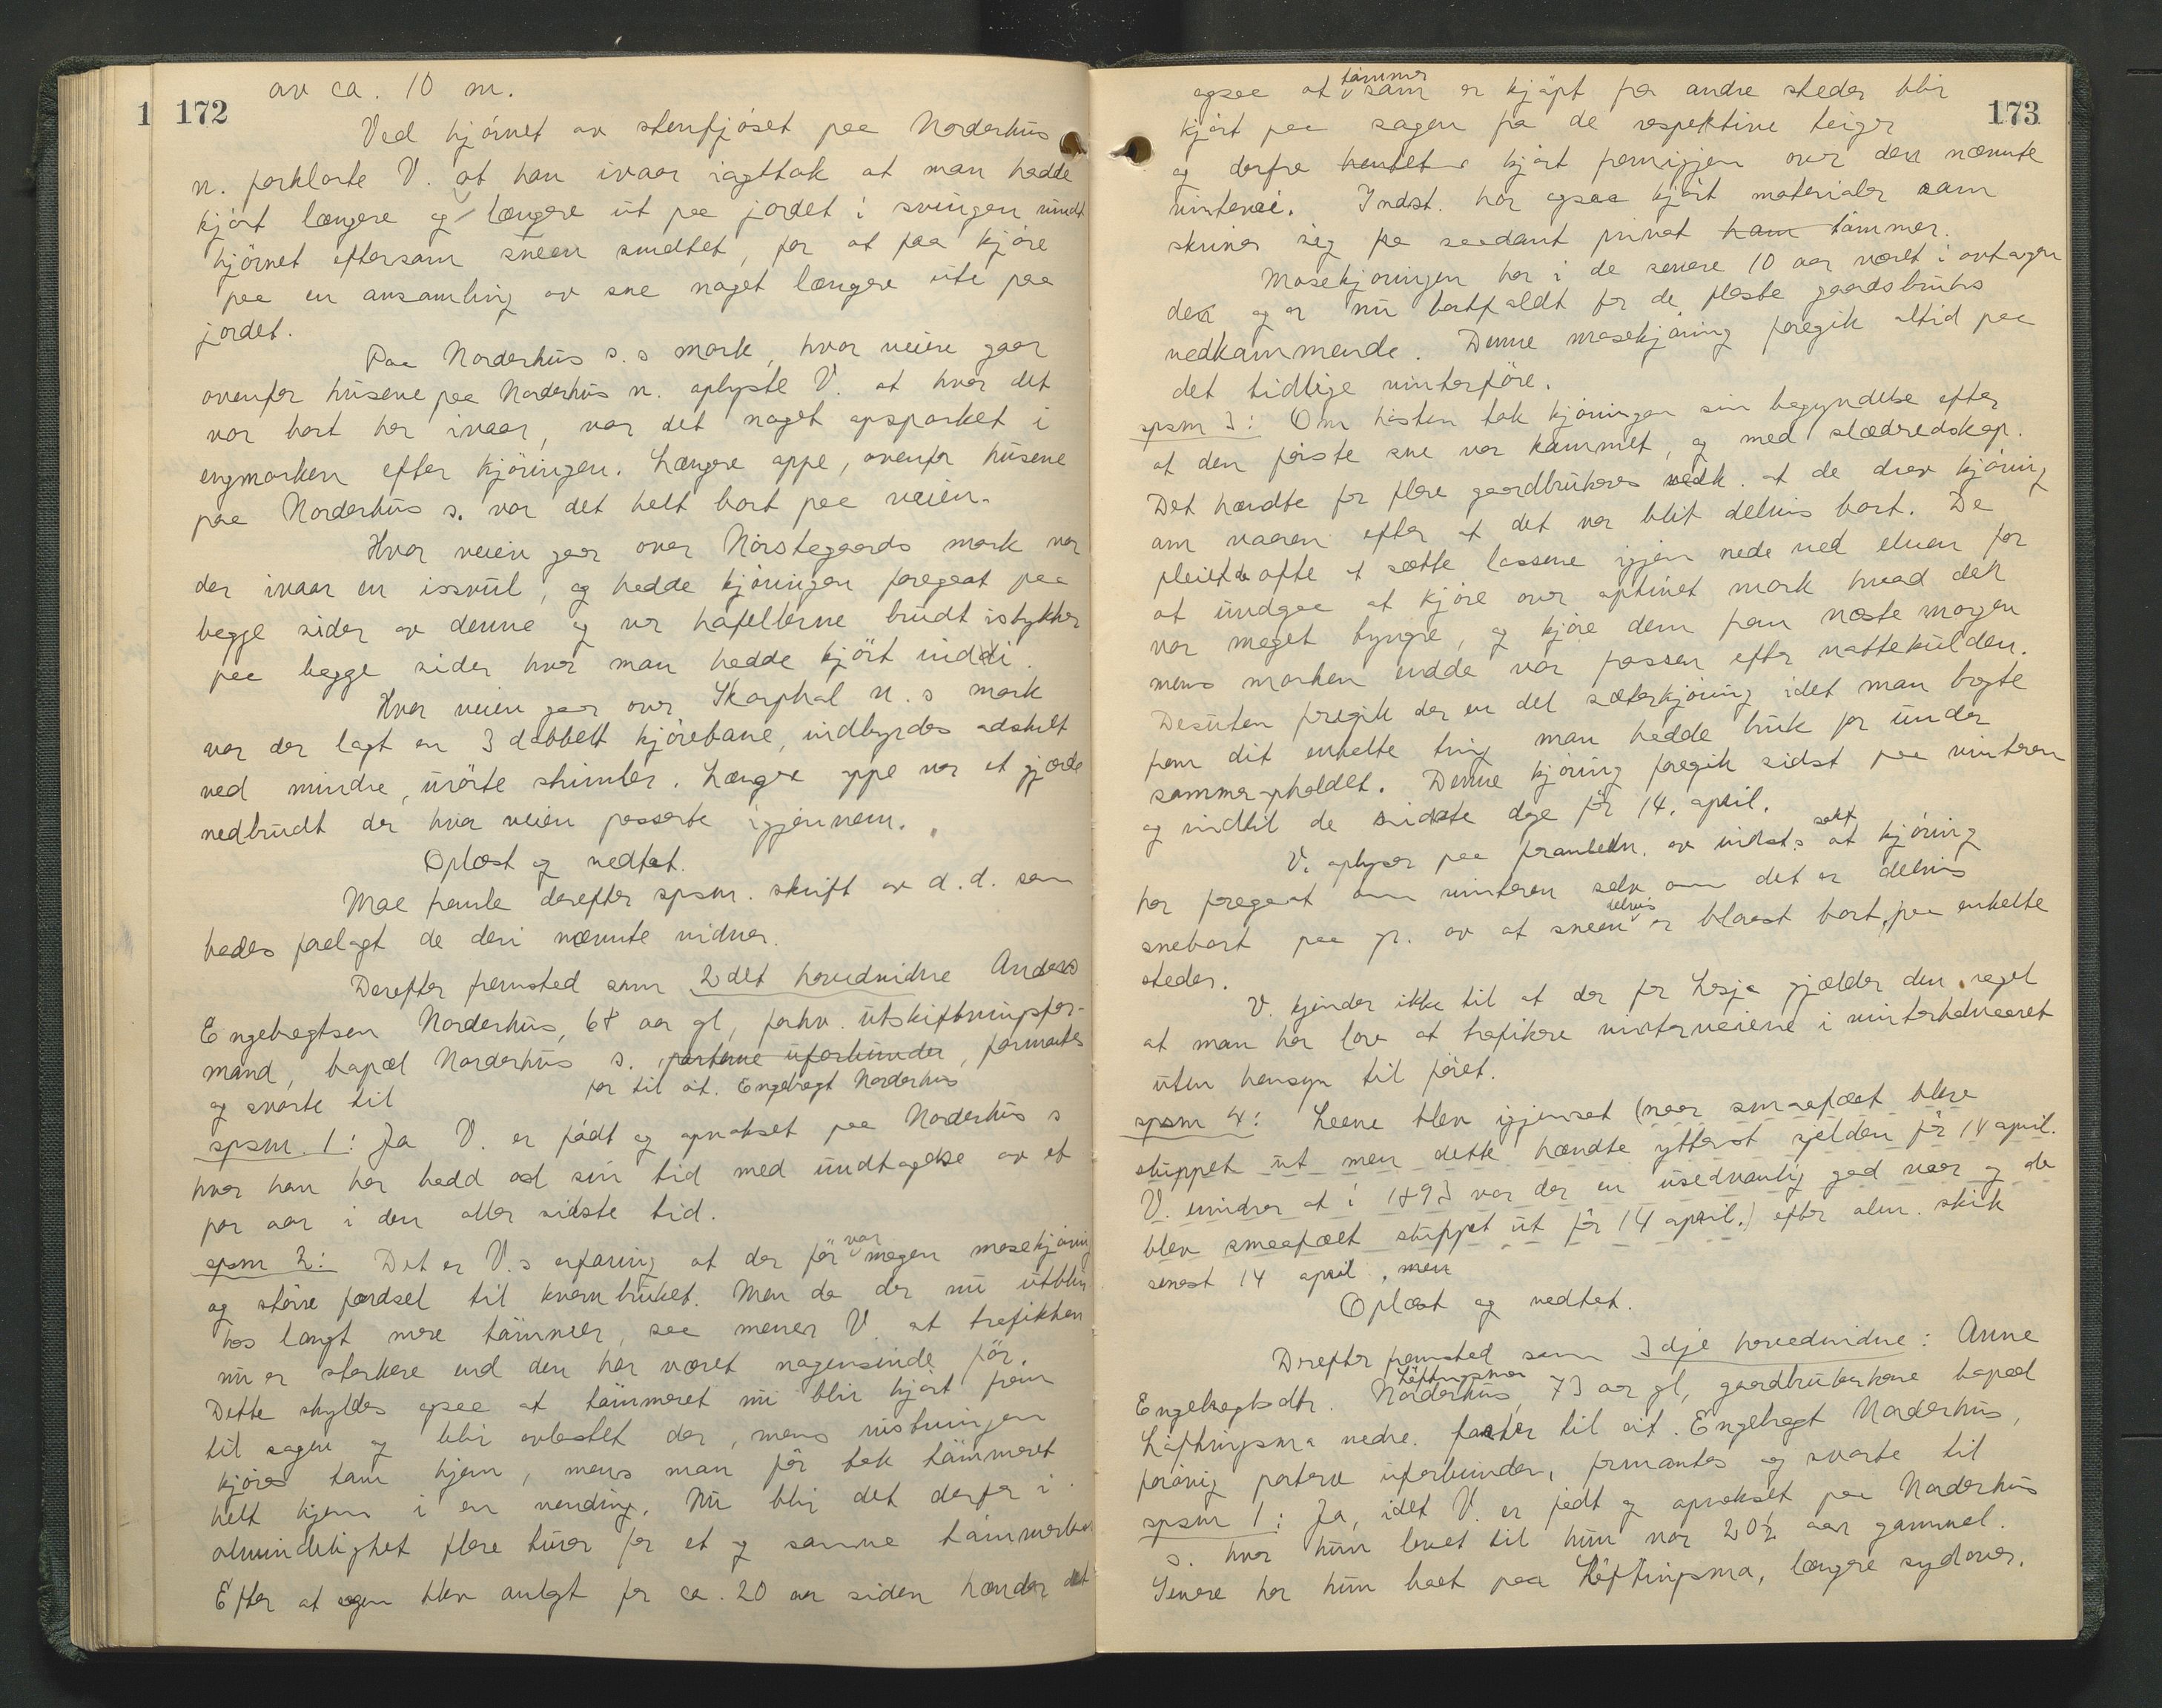 172
av ca. 10 m.
Ved hjörnet av stenfjöset paa Norderhus
n. forklarte V. at han ivaar iagttok at man hadde
kjört længere og længere ut paa jordet i svingen rundt
hjörnet eftersom sneen smeltet, for at faa kjöre
paa en ansamling av sne noget længere ute paa
jordet.
Paa Norderhus s.s mark, hvor veien gaar
ovenfor husene paa Norderhus n. oplyste V. at hvor det
var bart her ivaar, var det noget opsparket i
engmarken efter kjöringen. Længere oppe, ovenfor husene
paa Norderhus s. var det helt bart paa veien.
Hvor veien gaar over Norstegaards mark var
der ivaar en issvul, og hadde kjöringen foregaat paa
begge sider av denne og var hafellerne brudt istykker
paa begge sider hvor man hadde kjört inddi.
Hvor veien gaar over Skarphol n.s mark
var der lagt en 3 dobbelt kjörebane, indbyrdes adskilt
ved mindre, urörte strimler. Længere oppe var et gjærde
nedbrudt der hvor veien passerte igjennem.
Oplæst og vedtat.
Moe fremla derefter spsm. skrift av d.d. som
bades forelagt de deri nævnte vidner.
Derefter fremsted som 2det hovedvidne Anders
Engebregtsen Norderhus, 68 aar gl, forhv. utskiftningsfor-
mand, bopæl Norderhus s. partene uforbunden, formantes
og svarte til far til cit. Engebregt Norderhus
spsm. 1: Ja V. er födt og opvokset paa Norderhus s
hvor han har hadd al sin tid med undtagelse av et
par aar i den aller sidste tid.
spsm 2: Det er V.s erfaring at der för var megen mosekjöring
og större færdsel til kvernbruket. Men da der nu utblin
kes langt mere tömmer, saa mener V. at trafikken
nu er sterkere end den har været nogensinde för.
Dette skyldes ogsaa at tömmeret nu blir kjört frem
til sagen og blir avlastet der, mens
kjöres tom hjem, mens man för tok tömmeret
helt hjem i en vending. Nu blir det derfor i
almindelighet flere turer for et og samme tömmerlass
Efter at sagen blev anlagt for ca. 20 aar siden hænder det
173
ogsaa at tömmer som er kjöpt fra andre steder blir
kjört paa sagen fra de respektive teiger
og derfra hentet kjört fremigjen over den nævnte
vintervei. Indst. har ogsaa kjört materialer som
skriver sig fra saadant privat ham tömmer.
Mosekjöringen har i de senere 10 aar været i avtagen
de og er nu bortfaldt for de fleste gaardsbruks
vedkommende. Denne mosekjöring foregik altid paa
det tidlige vinterföre.
spsm 3: Om hösten tok kjöringen sin begyndelse efter
at den förste sne var kommet, og med slæderedskap.
Det hændte for flere gaardbrukeres vedk. at de drev kjöring
om vaaren efter at det var blit delvis bart. De
pleiet ofte at sætte lassene igjen nede ved elven for
at undgaa at kjöre over optinet mark hvad det
var meget tyngre, og kjöre dem frem næste morgen
mens marken endda var frossen efter nattekulden.
Desuten foregik der en del sæterkjöring idet man bragte
frem dit enkelte ting man hadde bruk for under
sommeropholdet. Denne kjöring foregik sidst paa vinteren
og indtil de sidste dage för 14. april.
V. oplyser paa foranledn. av indst.s sakf at kjöring
har foregaat om vinteren selv om det er delvis
snebart paa gr. av at sneen delvis er blaast bort paa enkelte
steder.
V. kjender ikke til at der for Lesja gjælder den regel
at man har lov at trafikere vinterveiene i vinterhalvaaret
uten hensyn til föret.
spsm 4: Leene blev igjensat (naar smaafæet blev
sluppet ut men dette hændte ytterst sjelden för 14 april.
V. erindrer at i 1893 var der en usedvanlig god vaar og da
blev smaafæet sluppet ut för 14 april.) efter alm. skik
senest 14 april, men
Oplæst og vedtat.
Derefter fremsted som 3dje hovedvidne: Anne
Engebregtsdtr. Norderhus Löftingsmo, 73 aar gl, gaardbrukerkone bopæl
Löftingsmo nedre. faster til cit. Engebregt Norderhus,
forövrig parterne uforbunden, formantes og svarte til
spsm 1: Ja, idet V. er födt og opvokset paa Norderhus
s. hvor hun levet til hun var 20½ aar gammel.
Senere har hun boet paa Löftingsmo, længere sydover.